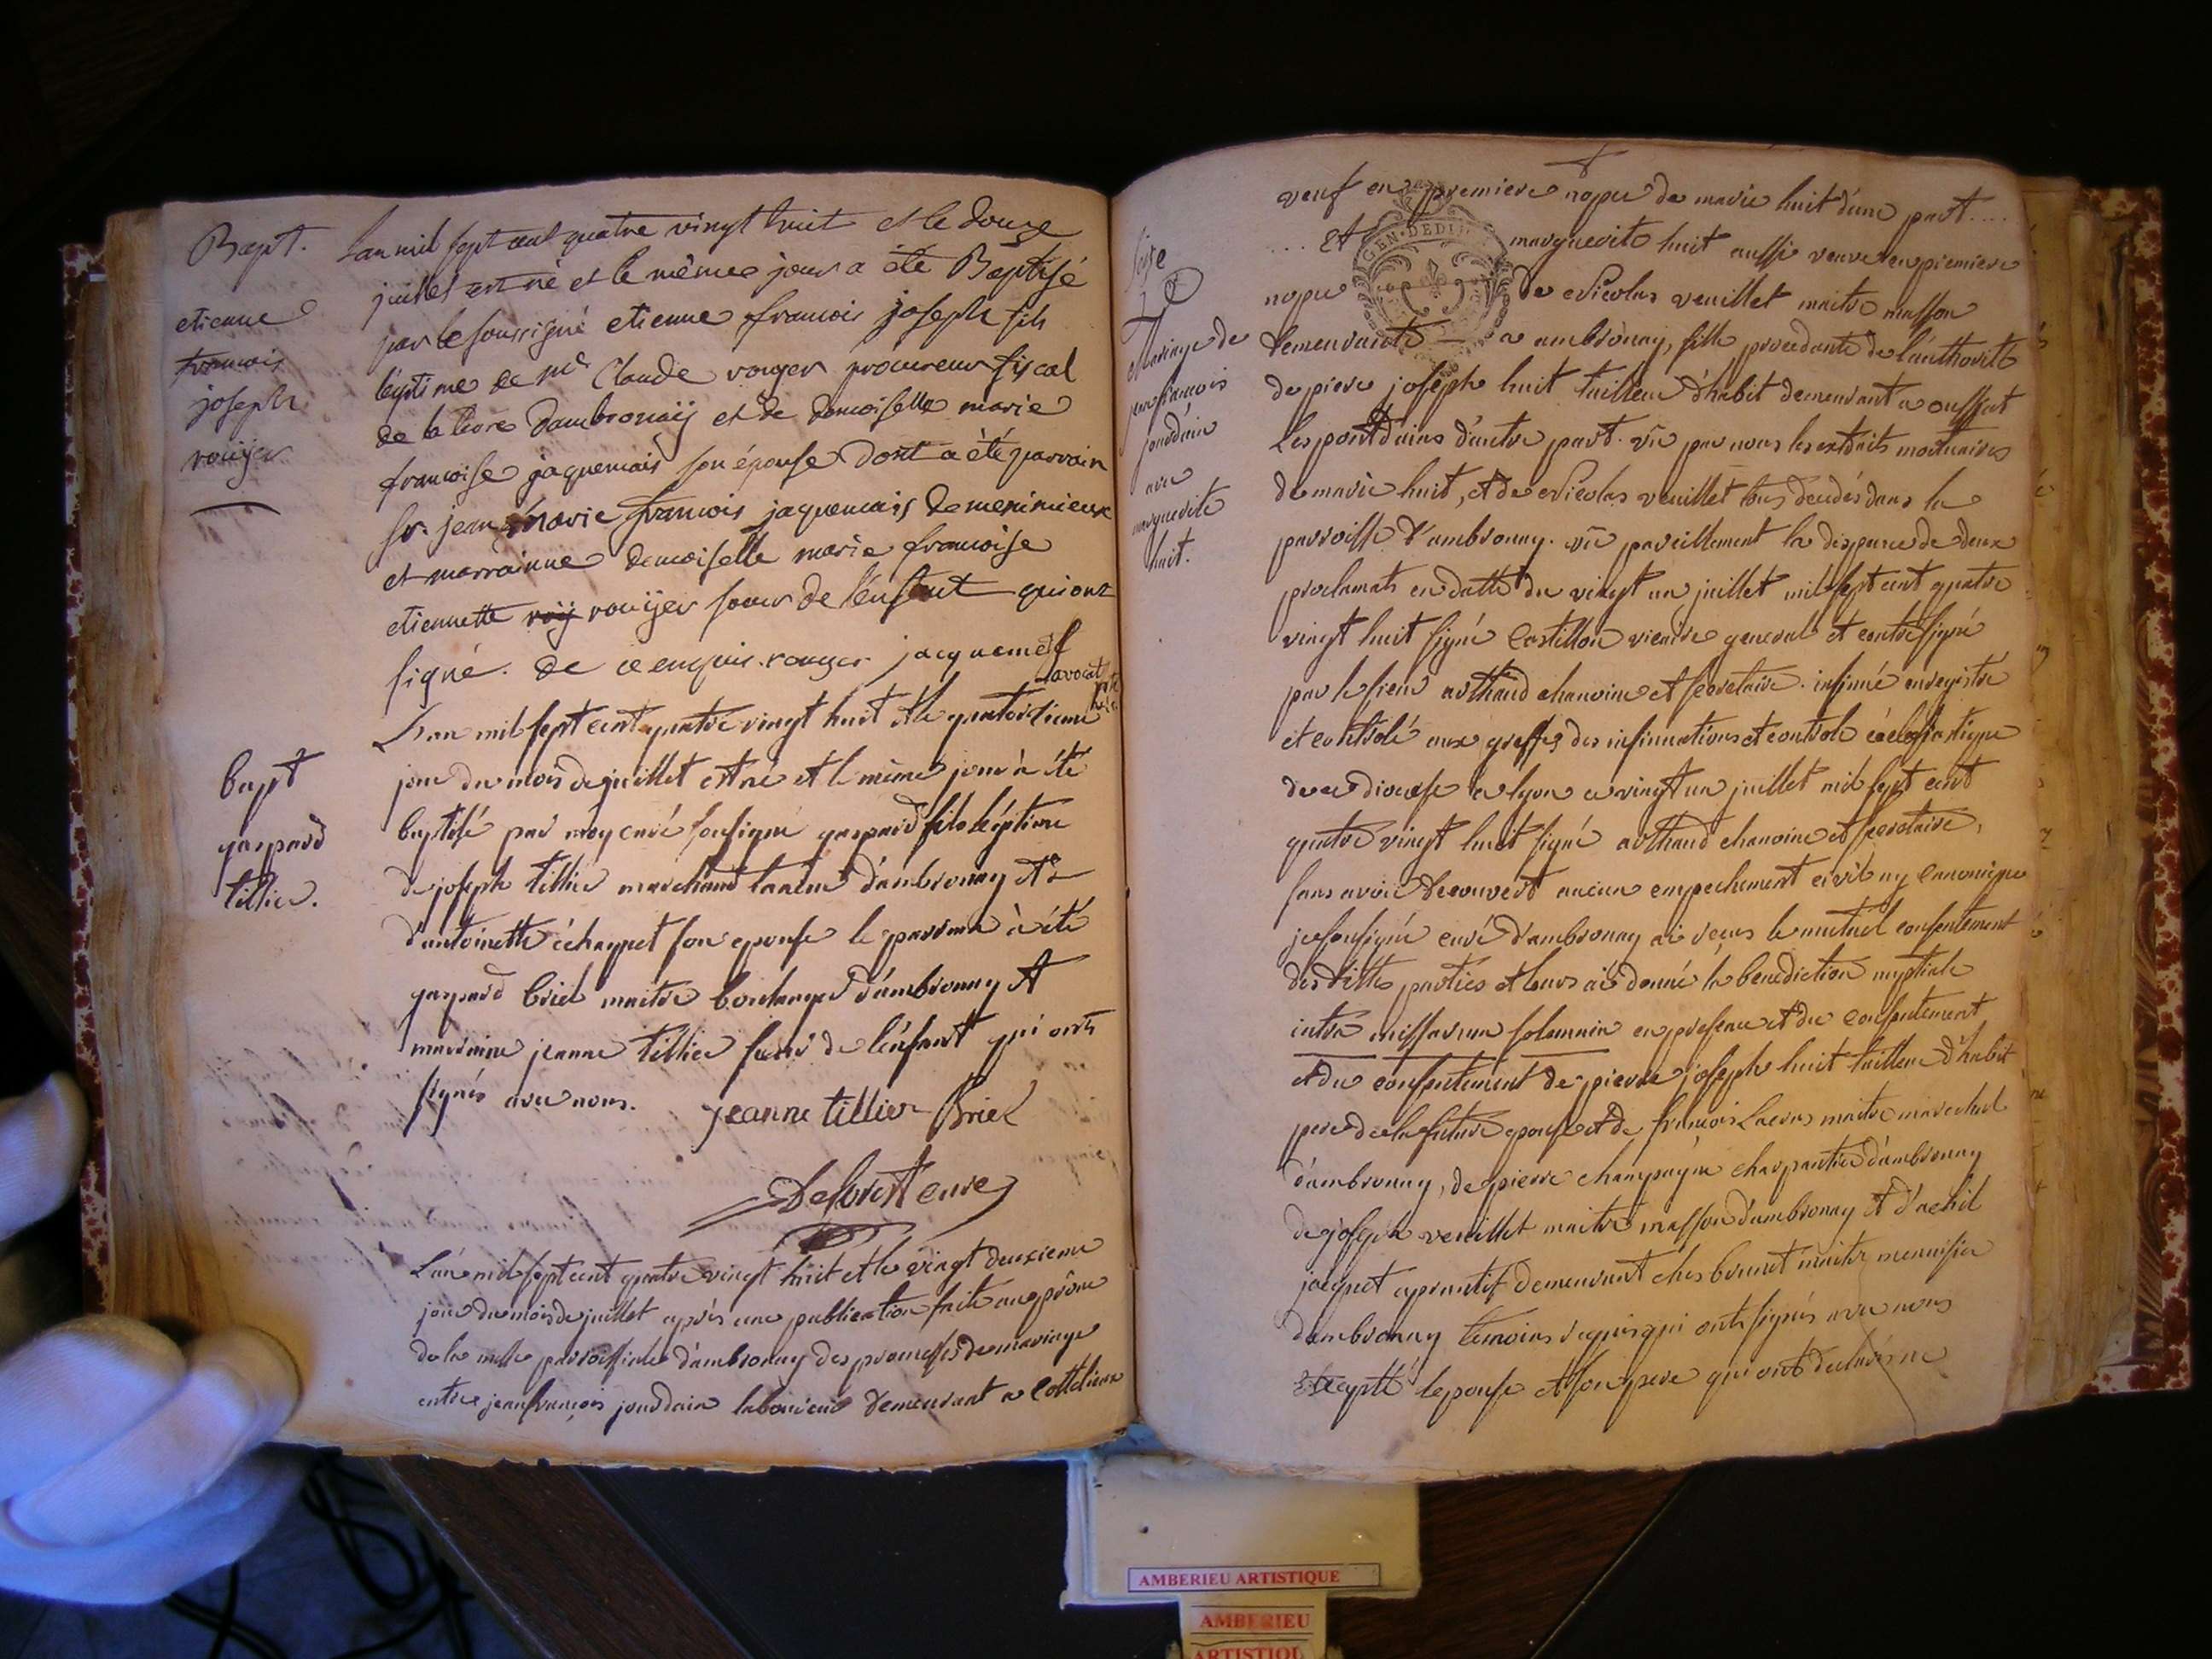 Bapt.
etienne
francois
joseph
rouyer
L'an mil sept cent quatre vingt huit et le douze
juillet est né et le même jour a été Baptisé
par le soussigné etienne francois joseph fils
légitime de Mr Claude rouyer procureur fiscal
de la terre dambronaÿ et de demoiselle marie
francoise jaquemais son épouse dont a été parrain
sr. jean marie francois jaquemais de meximieux
et marrainne demoiselle marie francoise
etiennette roÿ rouyer soeur de l'enfant qui ont
signé. de ce enquis. rouyer jacquemet
avocat
bapt
gaspard
tillier.
L'an mil sept cent quatre vingt huit et le quatorzieme
jour du mois de juillet est né et le même jour à été
baptisé par moy curé sousigné gaspard fils légitime
de joseph tillier marchand taneur d'ambronay et
d'antoinette échaquet son epouse le parrain à été
gaspard briel maitre boulanger d'ambronay et
marraine jeanne tillier soeur de l'enfant qui onts
signés avec nous. jeanne tillier Briel
Deforest curé
L'an mil sept cent quatre vingt huit et le vingt deuxieme
jour du mois de juillet après une publication faite au prône
de la messe parroissiale d'ambronay des promesses de mariage
entre jean françois jourdain laboureur demeurant a Cottelieux
GEN. DE DIJON
Mariage de
jean francois
jourdain
avec
marguerite
huit.
veuf en premiere nopce de marie huit d'une part....
.... Et marguerite huit aussi veuve en premiere
nopce de Nicolas veuillet maitre masson
demeurante a ambronay, fille procedante de l'authorité
de pierre joseph huit tailleur d'habit demeurant a oussiat
les pontdains d'autre part. vû par nous les extraits mortuaires
de marie huit, et de Nicolas veuillet tous decedés dans la
parroisse d'ambronay. vû pareillement la dispence de deux
proclamats en datte du vingt un juillet mil sept cent quatre
vingt huit signé Castillon vicaire general et contresigné
par le sieur arthaud chanoine et secretaire. insinué enregistré
et controlé aux greffes des insinuations et controle éclesiastique
de ce diocese a lyon ce vingt un juillet mil sept cent
quatre vingt huit signé arthaud chanoine et secretaire,
sans avoir decouvert aucun empechement civil ny canonique
je sousigné curé d'ambronay ai reçus le mutuel consentement
des dittes parties et leurs ai donné la benediction nuptiale
intra missarum solemnia en presence et du consentement
et du consentement de pierre joseph huit tailleur d'habit
pere de la future epouse et de françois Lacras maitre marechal
d'ambronay, de pierre champagne charpantier d'ambronay
de joseph veuillet maitre masson d'ambronay et d'achil
jacquet aprentif demeurant ches brunet maitre menuisier
d'ambronay temoins requis qui onts signés avec nous
excepté l'epouse et son pere qui ont declarés ne
AMBERIEU ARTISTIQUE
AMBERIEU